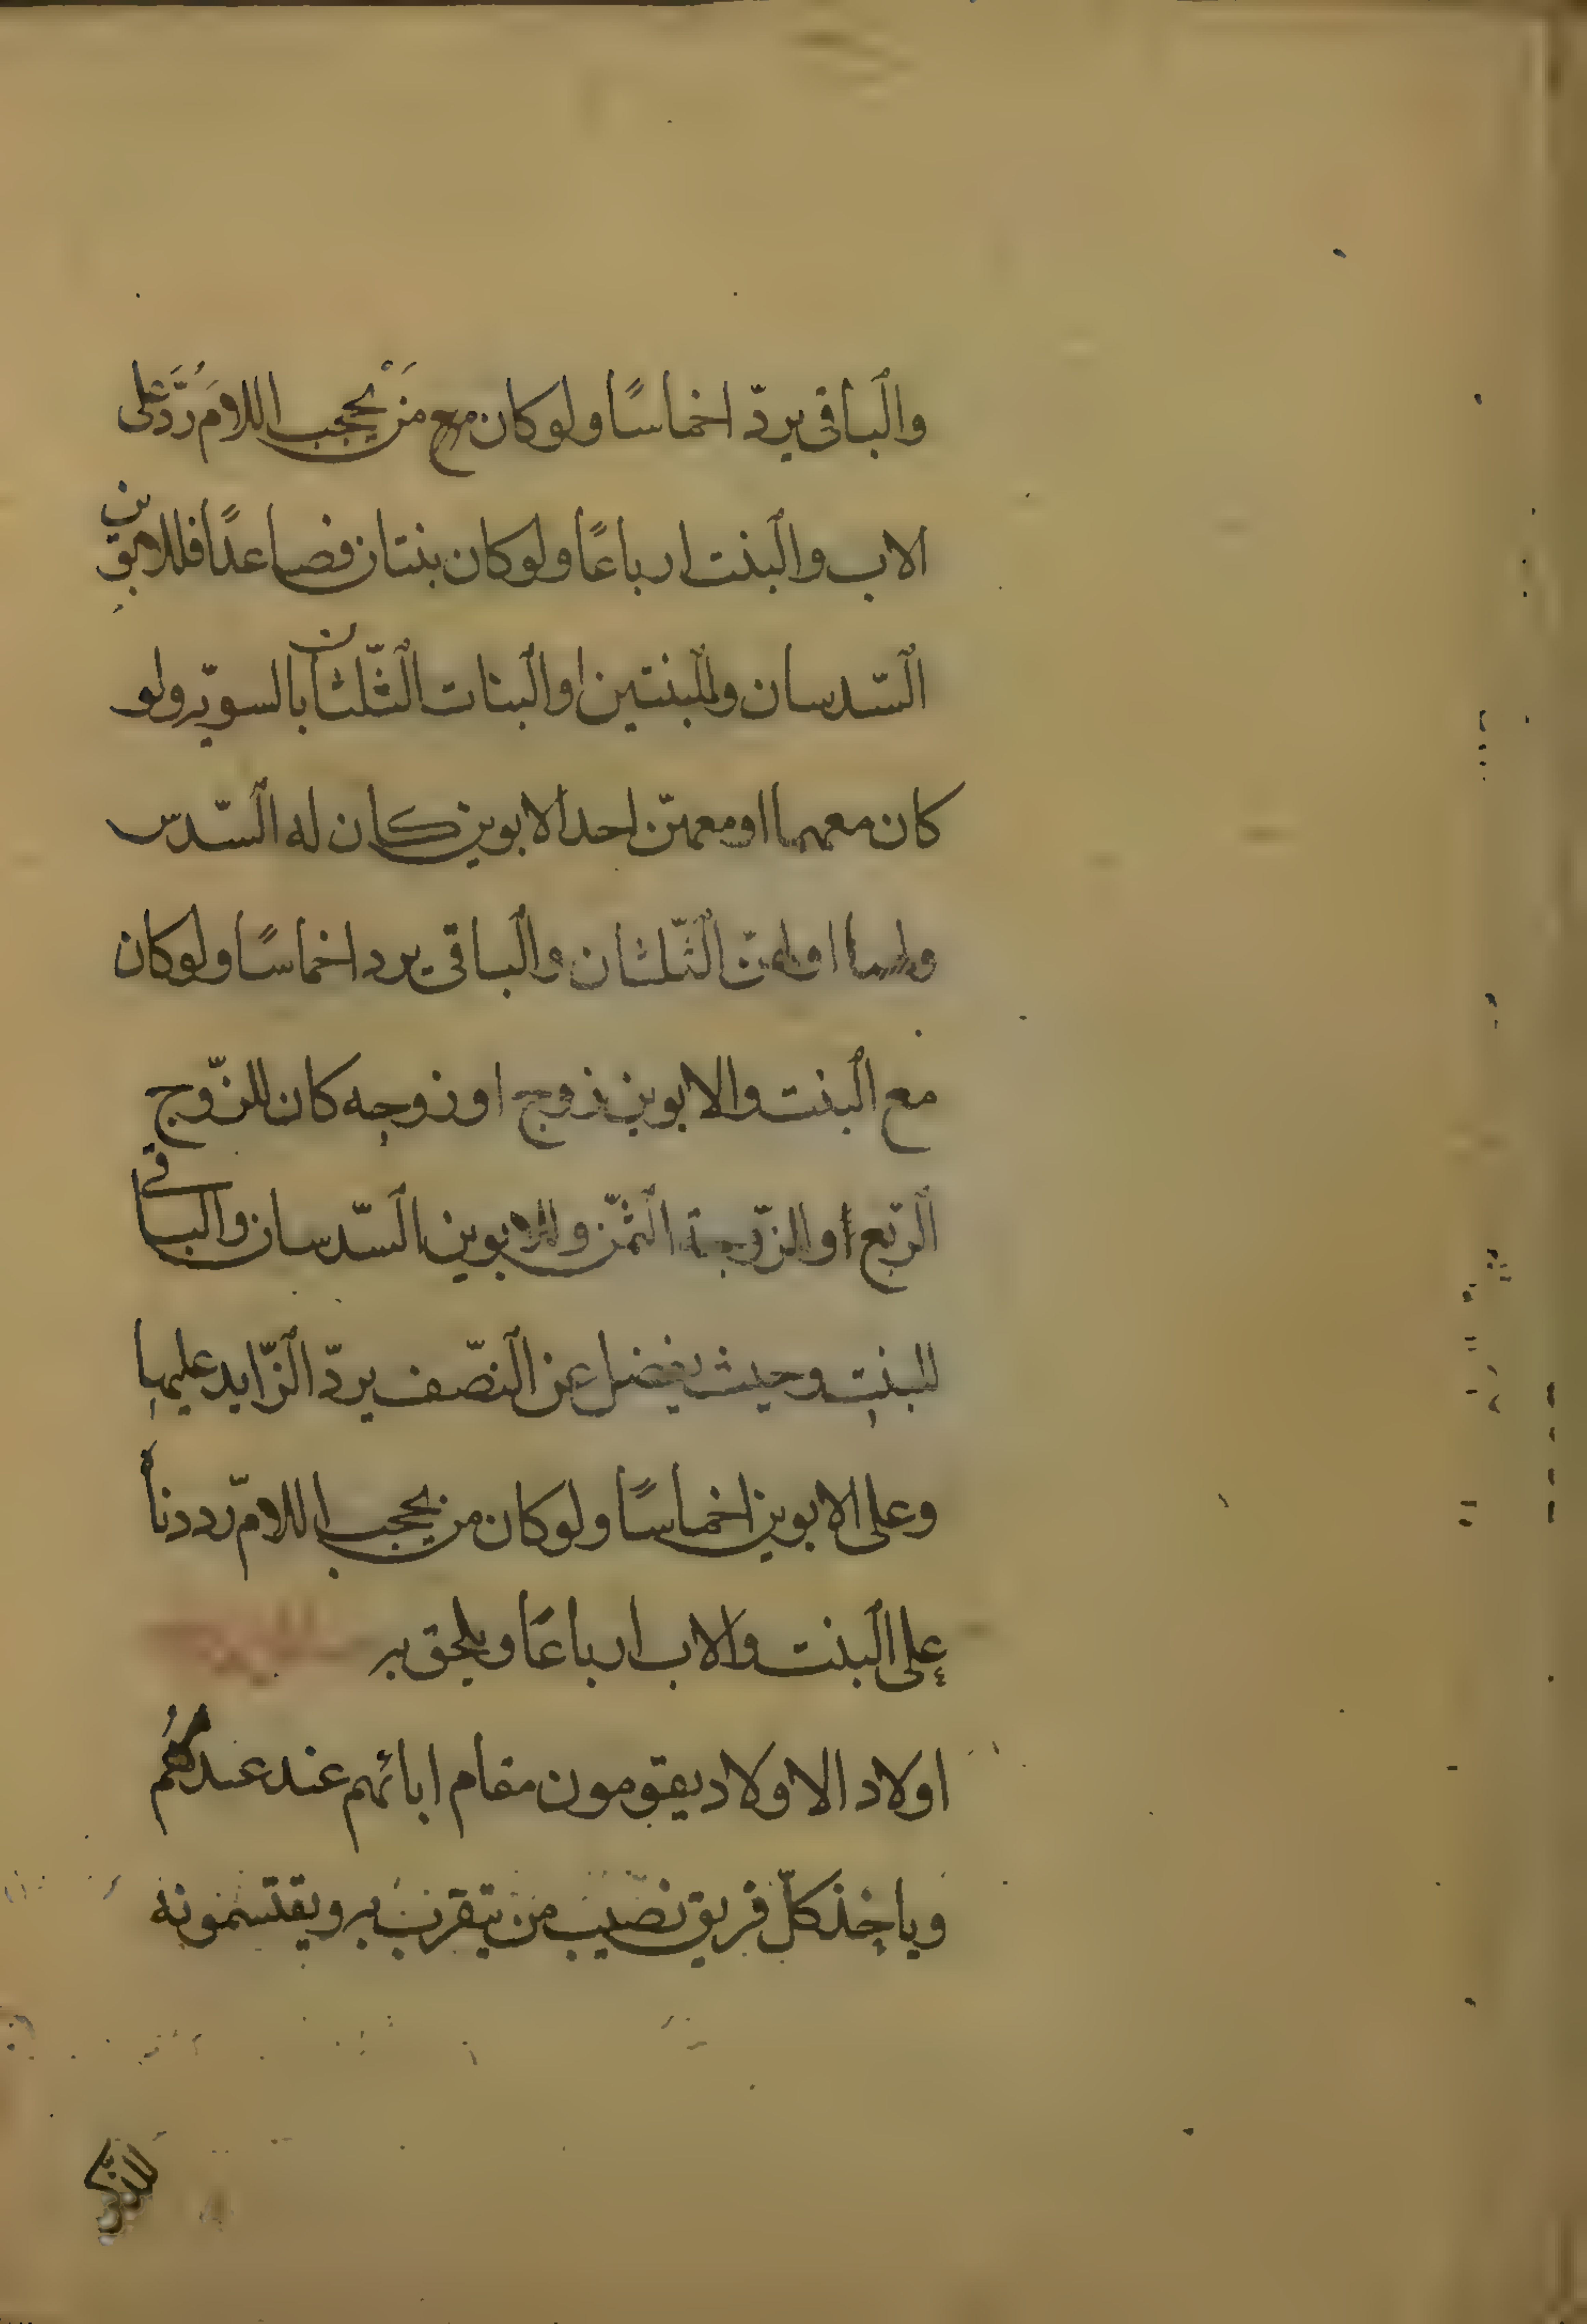 والباقي يردّ اخماسًا ولو كان مع مَنْ يحجب اللامَ رُدَّ عَلى
الاب والبنت ارباعًا ولو كان بنتان فصاعدًا فللابوين
السّدسان وللبنتين او البنات الثّلثان بالسويّه ولو
كان معهما او معهنّ احد الابوين كان له السّدس
ولهما او لهنّ الثّلثان والباقي يرد اخماسًا ولو كان
مع البنت والابوين زوج او زوجه كان للزّوج
الرّبع او الزّوجة الثّمن وللابوين السّدسان والباقي
للبنت وحيث يفضل عن النّصف يردّ الزّايد عليها
وعلى الابوين اخماسًا ولو كان من يحجب اللامّ رددناه
على البنت والاب ارباعًا ويلحق به
اولاد الاولاد يقومون مقام ابائهم عند عدمهُم
وياخذ كلّ فريق نصيب من يتقرب به ويقتسمونه
للذّكر